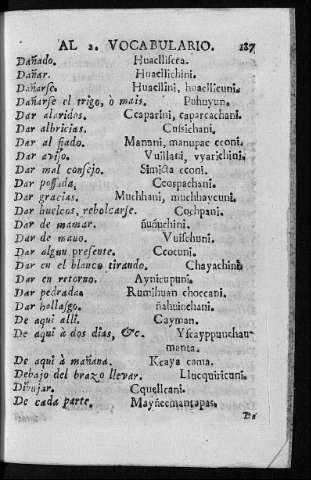 AL 2. VOCABULARIO. 187
Dañado. Huacllisca.
Dañar. Huacllichini.
Dañarse. Huacllini, huacllicuni.
Dañarse el trigo, ò mais. Puhuyun.
Dar alaridos. Ccaparini, caparcachani.
Dar albricias. Cusichani.
Dar al fiado. Manani, manupac cconi.
Dar aviso. Vuillani, vyarichini.
Dar mal consejo. Simicta cconi.
Dar possada, Ccospachani.
Dar gracias. Muchhani, muchhaycuni.
Dar huelcos, rebolcarse. Cochpani.
Dar de mamar. ñuñuchini.
Dar de mano. Vuischuni.
Dar algun presente. Ccocuni.
Dar en el blanco tirando. Chayachini
Dar en retorno. Aynicupuni.
Dar pedrada. Rumihuan choccani.
Dar hallasgo. ñahuinchani.
De aqui alli. Cayman.
De aqui à dos dias, &c. Yscayppunchau
manta.
De aqui à mañana. Kcaya cama.
Debajo del brazo llevar. Llucquiricuni.
Dibujar. Cquellcani.
De cada parte. Mayñecmantapas.
De